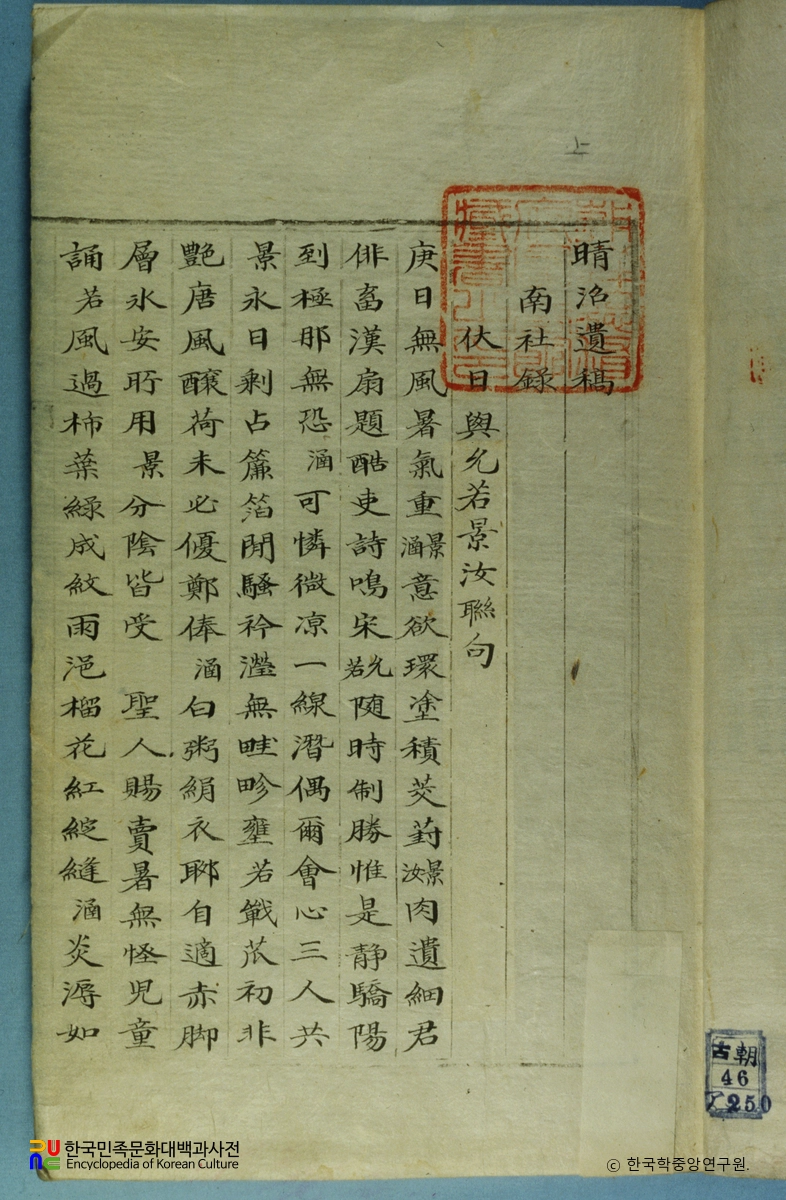 上
晴沼遺稿
南社錄
伏日與允若景汝聯句
庚日無風暑氣重景涵意欲環塗積茭葑景汝肉遺細君
俳畜漢扇題酷吏詩鳴宋允若随時制勝惟是静驕陽
到極那無恐涵可憐微凉一線潛偶爾會心三人共
景永日剩占簾箔閒騷衿瀅無畦畛壅若戰苽初非
艶唐風醸荷未必優鄭俸涵白粥絹衣聊自適赤脚
層氷安所用景分陰皆受 聖人賜賣暑無怪児童
誦若風過柿葉緑成紋雨浥榴花紅綻縫涵炎溽如
古朝
46
250
한국민족문화대백과사전
Encyclopedia of Korean Culture
ⓒ 한국학중앙연구원.